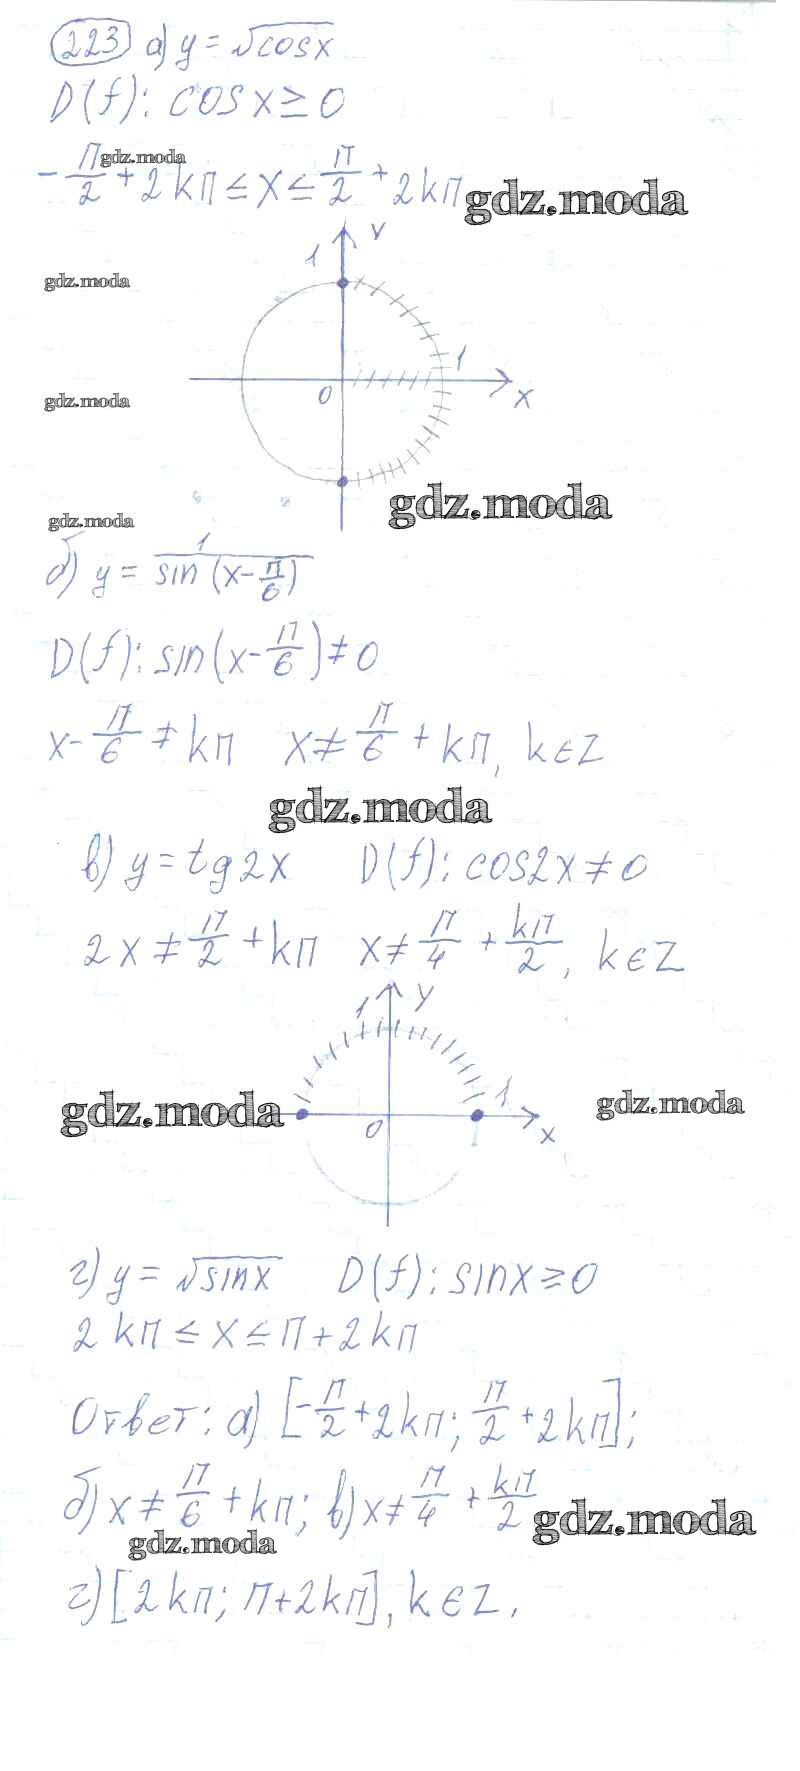 223 а) y = √cosx
D(f): cosx ≥ 0
gdz.moda
-π/2 + 2kπ ≤ x ≤ π/2 + 2kπ
gdz.moda
Y
1
gdz.moda
1
0
X
gdz.moda
gdz.moda
gdz.moda
б) y = 1/sin(x-π/6)
D(f): sin(x-π/6) ≠ 0
x-π/6 ≠ kπ x ≠ π/6 + kπ, k∈Z
gdz.moda
в) y = tg2x D(f): cos2x ≠ 0
2x ≠ π/2 + kπ x ≠ π/4 + kπ/2, k∈Z
1 y
gdz.moda
1
gdz.moda
0
x
г) y = √sinx D(f): sinx ≥ 0
2kπ ≤ x ≤ π + 2kπ
Ответ: а) [-π/2 + 2kπ; π/2 + 2kπ];
б) x ≠ π/6 + kπ; в) x ≠ π/4 + kπ/2
gdz.moda
gdz.moda
г) [2kπ; π+2kπ], k∈Z.